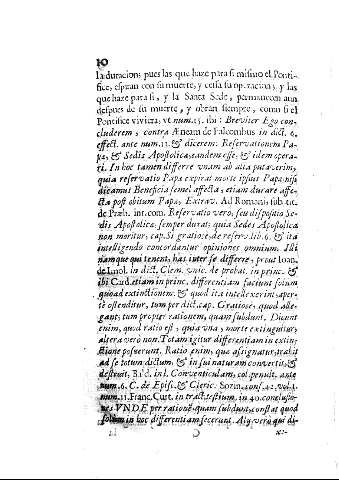 10
la duracion; pues las que haze para si mismo el Ponti-
fice, espiran con su muerte, y cessa su operacion; y las
que haze para si, y la Santa Sede, permanecen aun
despues de su muerte, y obran siempre, como si el
Pontifice viviera; vt num. 15. ibi: Breviter Ego con-
cluderem, contra Æneam de Falconibus in dict. 6.
effect. ante num. 12. & dicerem: Reservationem Pa-
pæ, & Sedis Apostolicæ, eandem esse, & idem opera-
ri. In hoc tamen differre vnam ab alta putaverim,
quia reservatio Papæ expirat morte ipsius Papæ, nisi
dicamus Beneficia semel affecta, etiam durare affe-
cta post obitum Papæ, Extrav. Ad Romani, sub tit.
de Præb. int. com. Reservatio vero, seu dispositio Se-
dis Apostolicæ, semper durat; quia Sedes Apostolica
non moritur, cap. Si gratiose, de reser. lib. 6. & ita
intelligendo concordantur opiniones omnium. Illi
namque qui tenent, has inter se differre, prout Ioan.
de Imol. in dict. Clem. vnic. de probat. in princ. &
ibi Card. etiam in princ. differentiam faciunt solum
quoad extinctionem. & quod ita intellexerint, aper-
tè ostenditur, tum per dict. cap. Gratiose, quod alle-
gant; tum propter rationem, quam subdunt. Dicunt
enim, quod ratio est, quia vna, morte extinguitur,
altera vero non. Totam igitur differentiam in extin-
ctione posuerunt. Ratio enim, quæ assignatur, trahit
ad se totum dictum, & in sui naturam convertit, &
destruit, Bald. in l. Conventiculam, col. penult. ante
num. 6. C. de Epis. & Cleric. Sozin. cons. 42. vol. 1.
num. 11. Franc. Curt. in tract. testium, in 40. conclusio-
nes VNDE per rationē, quam subdunt, constat quod
solum in hoc differentiam fecerunt. Aliqverò qui di-
C